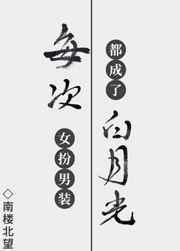 每次
女扮男装
都成了
白月光
◇南楼北望